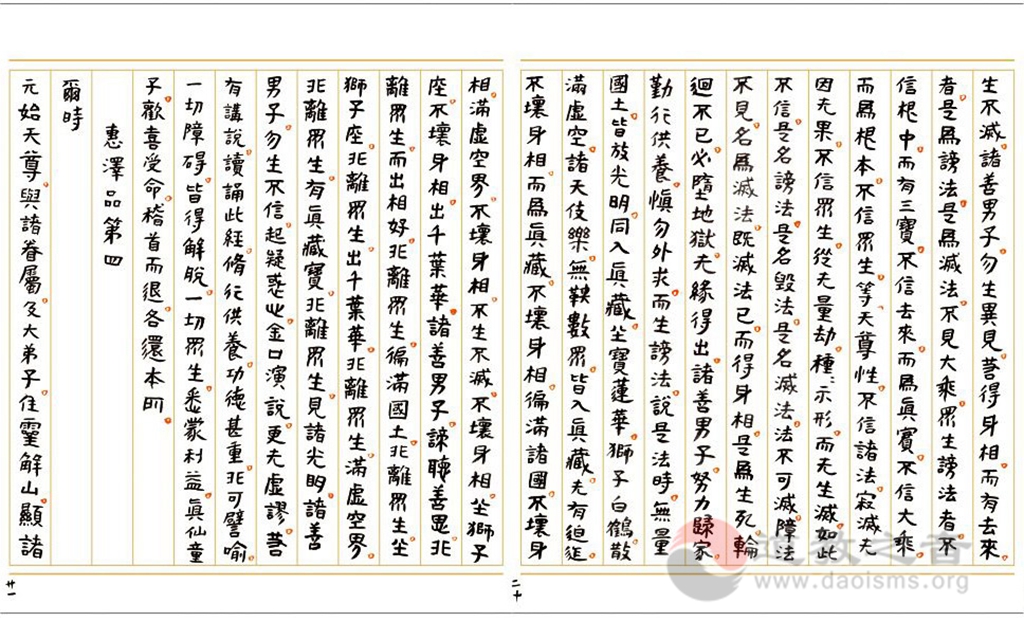 生不滅。諸善男子。勿生異見。若得身相。而有去來
者。是爲謗法。是爲滅法。不見大乘。眾生謗法者。不
信根中。而有三寶。不信去來。而爲眞實。不信大乘。
而爲根本。不信眾生。等天尊性。不信諸法。寂滅无
因无果。不信眾生。從无量劫。種〻示形。而无生滅。如此
不信。是名謗法。是名毀法。是名滅法。法不可滅。障法
不見。名爲滅法。旣滅法已。而得身相。是爲生死。輪
迴不已。必墮地獄。无緣得出。諸善男子。努力歸家。
勤行供養。慎勿外求。而生謗法。說是法時。無量
國土。皆放光明。同入眞藏。坐寶蓮華。獅子白鶴。散
滿虛空。諸天伎樂。無鞅數眾。皆入眞藏。无有迫迮。
不壞身相。而爲眞藏。不壞身相。徧滿諸國。不壞身
相。滿虛空界。不壞身相。不生不滅。不壞身相。坐獅子
座。不壞身相。出千葉華。諸善男子。諦聽善思。非
離眾生。而出相好。非離眾生。徧滿國土。非離眾生。坐
獅子座。非離眾生。出千葉華。非離眾生。滿虛空界。
非離眾生。有眞藏寶。非離眾生。見諸光明。諸善
男子。勿生不信。起疑惑心。金口演說。更无虛謬。若
有講說。讀誦此經。脩行供養。功德甚重。非可譬喻。
一切障碍。皆得解脫。一切眾生。悉蒙利益。眞仙童
子。歡喜受命。稽首而退。各還本所。
惠澤品第四
爾時
元始天尊。與諸眷屬。及大弟子。住靈解山。顯諸
二十
廿一
道教之音
www.daoisms.org